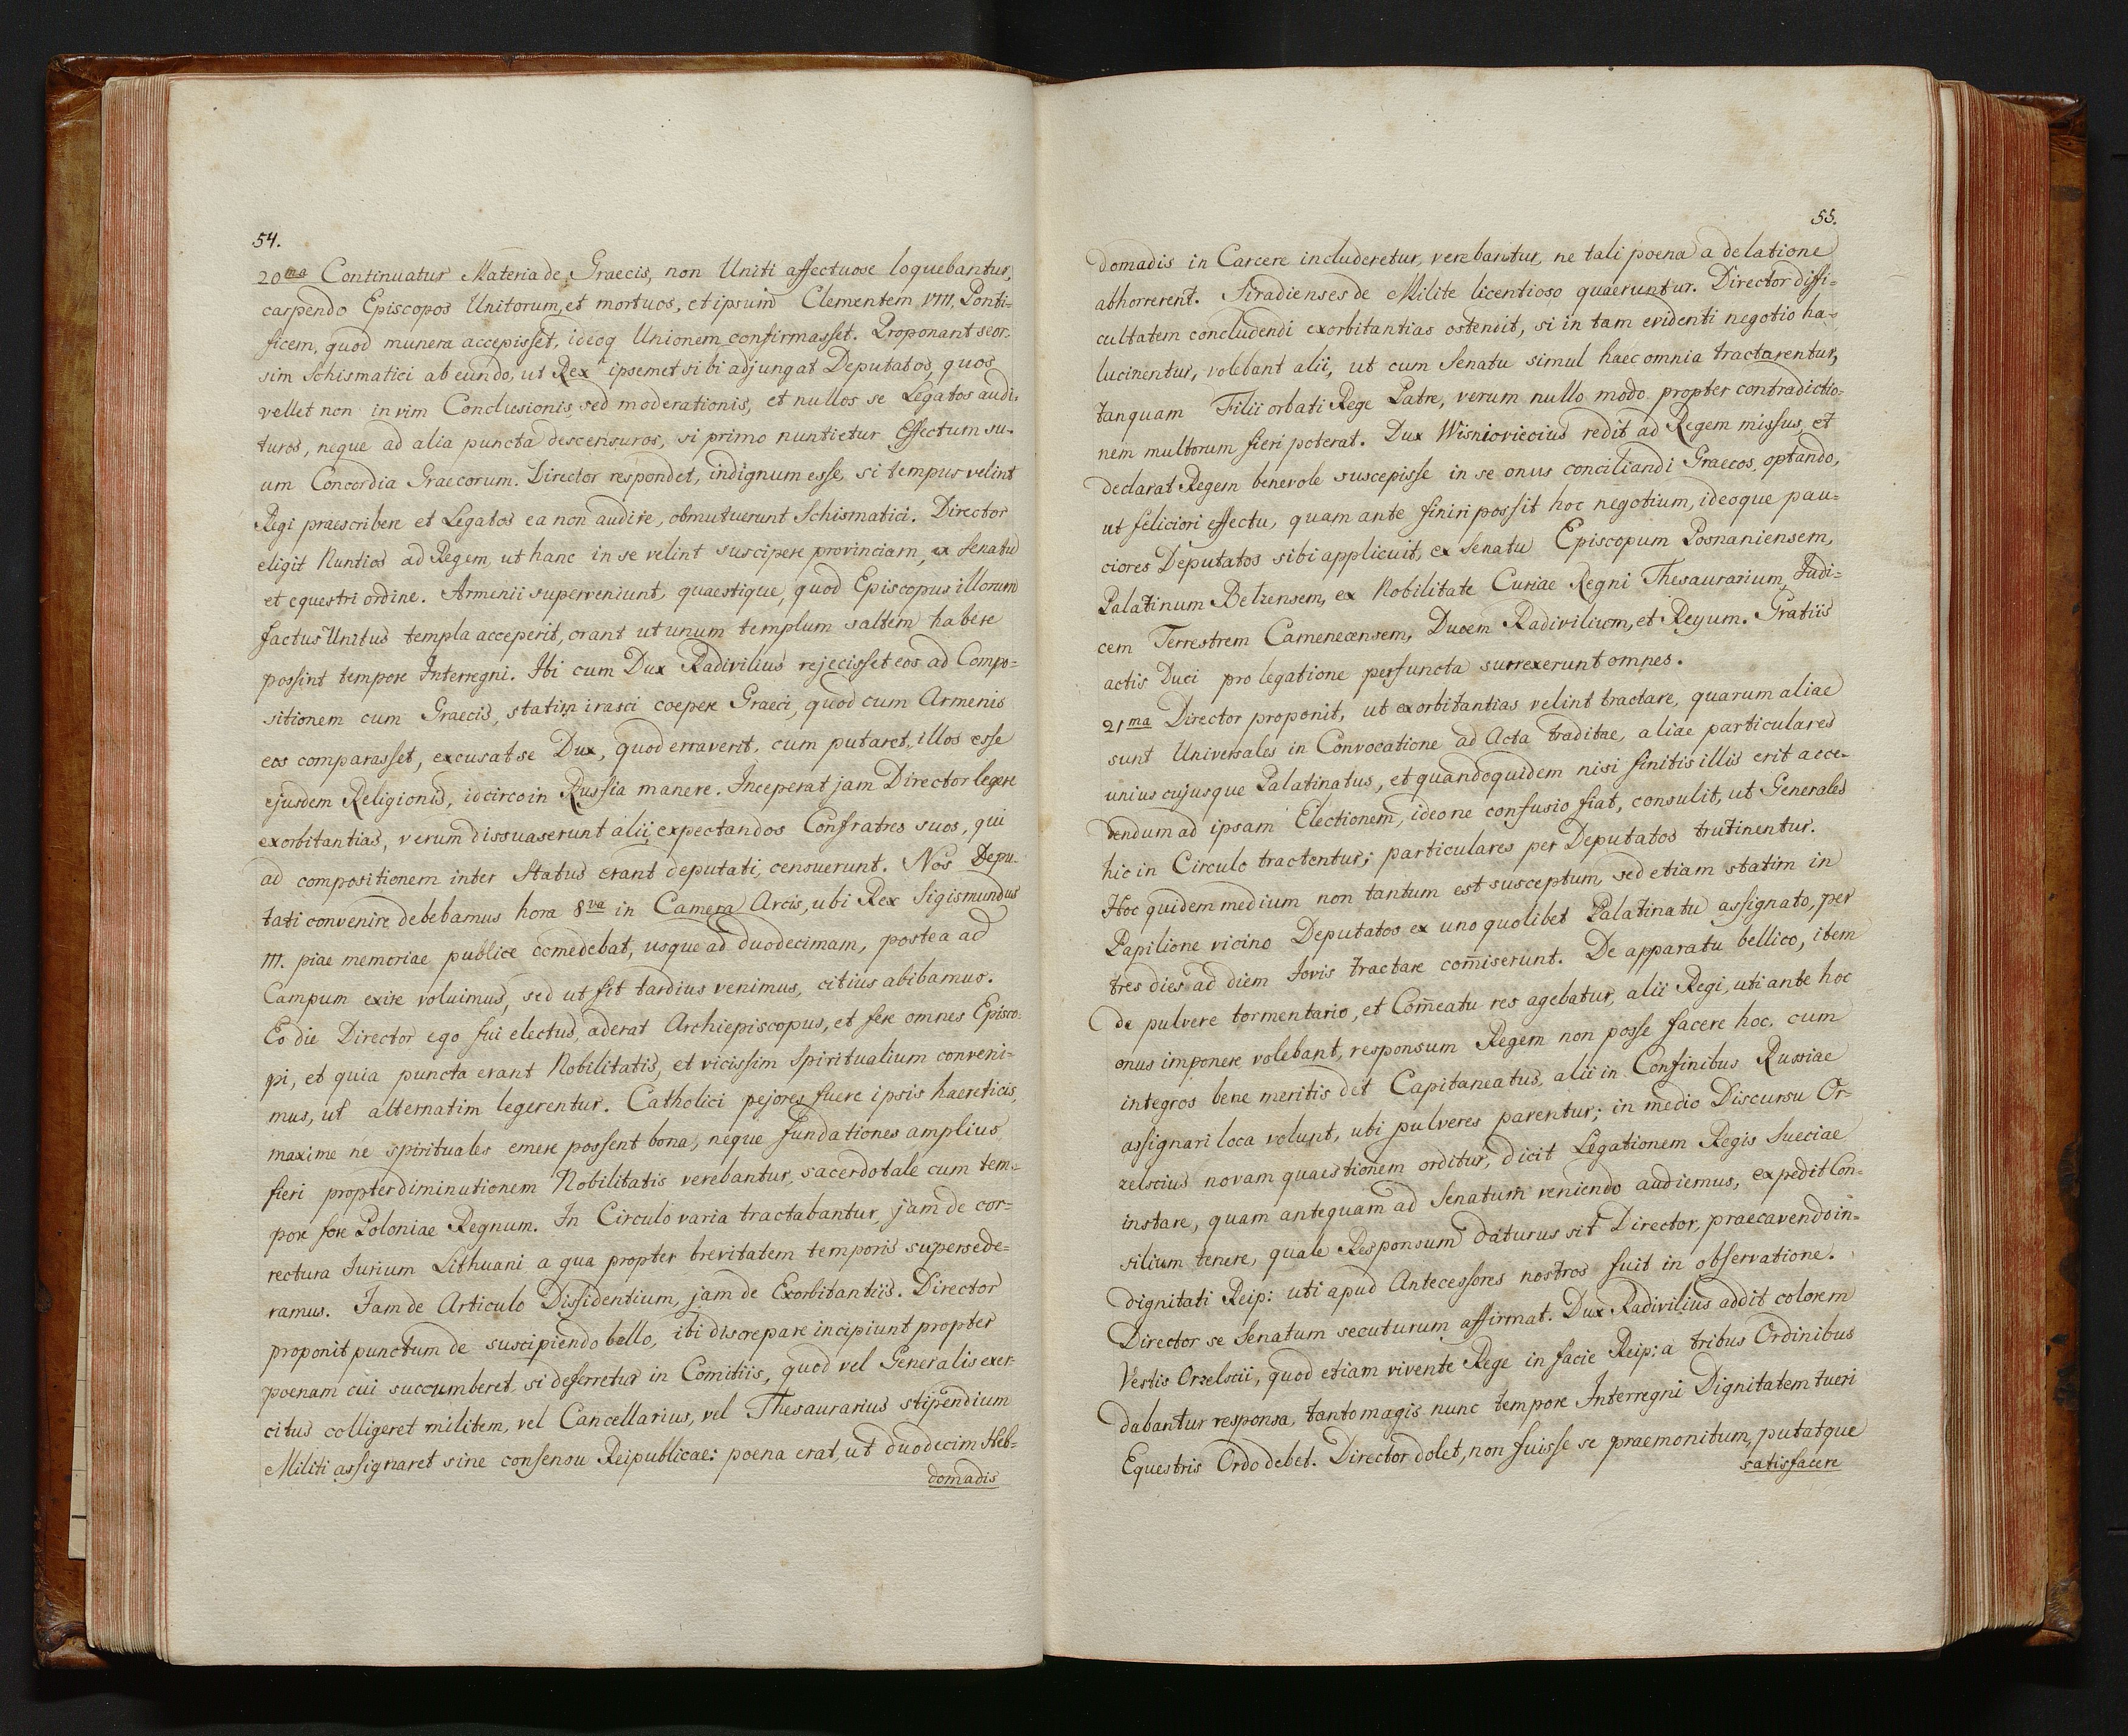 54.
20ma Continuatur Materia de Graecis, non Uniti affectuose loquebantur,
carpendo Episcopos Unitorum, et mortuos, et ipsum Clementem VIII. Ponti-
ficem, quod munera accepisset, ideoq Unionem confirmasset. Proponant seor-
sim Schismatici ab eundo, ut Rex ipsemet sibi adjungat Deputatos, quos
vellet non in vim Conclusionis, sed moderationis, et nullos se Legatos audi-
turos, neque ad alia puncta descensuros, si primo nuntietur Effectum su-
um Concordia Graecorum. Director respondet, indignum esse, si tempus velint
Regi praescribere et Legatos ea non audire, obmutuerunt Schismatici. Director
eligit Nuntios ad Regem, ut hanc in se velint suscipere provinciam, ex Senatu
et equestri ordine. Armenii superveniunt, quaestique, quod Episcopus illorum
factus Unitus templa acceperit, orant ut unum templum saltem habere
possint tempore Interregni. Ibi cum Dux Radivilius rejecisset eos ad Compo-
sitionem cum Graecis, statim irasci coepere Graeci, quod cum Armenis
eos comparasset, excusat se Dux, quod erraverit, cum putaret, illos esse
ejusdem Religionis, idcirco in Russia manere. Inceperat jam Director legere
exorbitantias, verum dissuaserunt alii, expectandos Confratres suos, qui
ad compositionem inter Status erant deputati, censuerunt. Nos Depu-
tati convenire debebamus hora 8va in Camera Arcis, ubi Rex Sigismundus
III. piae memoriae publice comedebat, usque ad duodecimam, postea ad
Campum exire voluimus, sed ut fit tardius venimus, citius abibamus.
Eo die Director ego fui electus, aderat Archiepiscopus, et fere omnes Episco-
pi, et quia puncta erant Nobilitatis, et vicissim Spiritualium conveni-
mus, ut alternatim legerentur. Catholici pejores fuere ipsis haereticis,
maxime ne spirituales emere possent bona, neque fundationes amplius
fieri propter diminutionem Nobilitatis verebantur, sacerdotale cum tem-
pore fore Poloniae Regnum. In Circulo varia tractabantur, jam de cor-
rectura Jurium Lithuani a qua propter brevitatem temporis supersede-
ramus. Jam de Articulo Dissidentium, jam de Exorbitantiis. Director
proponit punctum de suscipiendo bello, ibi discrepare incipiunt propter
poenam cui succumberet, si deferretur in Comitiis, quod vel Generalis exer-
citus colligeret militem, vel Cancellarius, vel Thesaurarius stipendium
Militi assignaret sine consensu Reipublicae: poena erat, ut duodecim Heb-
domadis
55.
domadis in Carcere includeretur, verebantur, ne tali poena a delatione
abhorrerent. Siradienses de Milite licentioso quaeruntur. Director diffi-
cultatem concludendi exorbitantias ostendit, si in tam evidenti negotio ha-
lucinentur, volebant alii, ut cum Senatu simul haec omnia tractarentur,
tanquam Filii orbati Rege Patre, verum nullo modo propter contradictio-
nem multorum fieri poterat. Dux Wisnioviecius redit ad Regem missus, et
declarat Regem benevole suscepisse in se onus conciliandi Graecos, optando,
ut feliciori effectu, quam ante finiri possit hoc negotium, ideoque pau-
ciores Deputatos sibi applicuit, ex Senatu Episcopum Posnaniensem,
Palatinum Belzensem, ex Nobilitate Curiae Regni Thesaurarium, Judi-
cem Terrestrem Camenecensem, Ducem Radivilium, et Reyum. Gratiis
actis Duci pro legatione perfuncta surrexerunt omnes.
21ma Director proponit, ut exorbitantias velint tractare, quarum aliae
sunt Universales in Convocatione ad Acta traditae, aliae particulares
unius cujusque Palatinatus, et quandoquidem nisi finitis illis erit acce-
dendum ad ipsam Electionem, ideo ne confusio fiat, consulit, ut Generales
hic in Circulo tractentur; particulares per Deputatos trutinentur.
Hoc quidem medium non tantum est susceptum, sed etiam statim in
Papilione vicino Deputatos ex uno quolibet Palatinatu assignato, per
tres dies ad diem Jovis tractare com̄iserunt. De apparatu bellico, item
de pulvere tormentario, et Com̄eatu res agebatur, alii Regi, uti ante hoc
onus imponere volebant, responsum Regem non posse facere hoc, cum
integros bene meritis det Capitaneatus, alii in Confinibus Russiae
assignari loca volunt, ubi pulveres parentur; in medio Discursu Or-
zelscius novam quaestionem orditur, dicit Legationem Regis Sueciae
instare, quam antequam ad Senatum veniendo audiemus, expedit Con-
silium tenere, quale Responsum daturus sit Director, praecavendo in-
dignitati Reip: uti apud Antecessores nostros fuit in observatione.
Director se Senatum secuturum affirmat. Dux Radivilius addit colorem
Vestis Orzelscii, quod etiam vivente Rege in facie Reip: a tribus Ordinibus
dabantur responsa, tanto magis nunc tempore Interregni Dignitatem tueri
Equestris Ordo debet. Director dolet, non fuisse se praemonitum, putatque
satisfacere